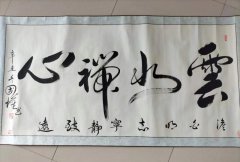 雲水禅心
澹泊明志寧静致遠